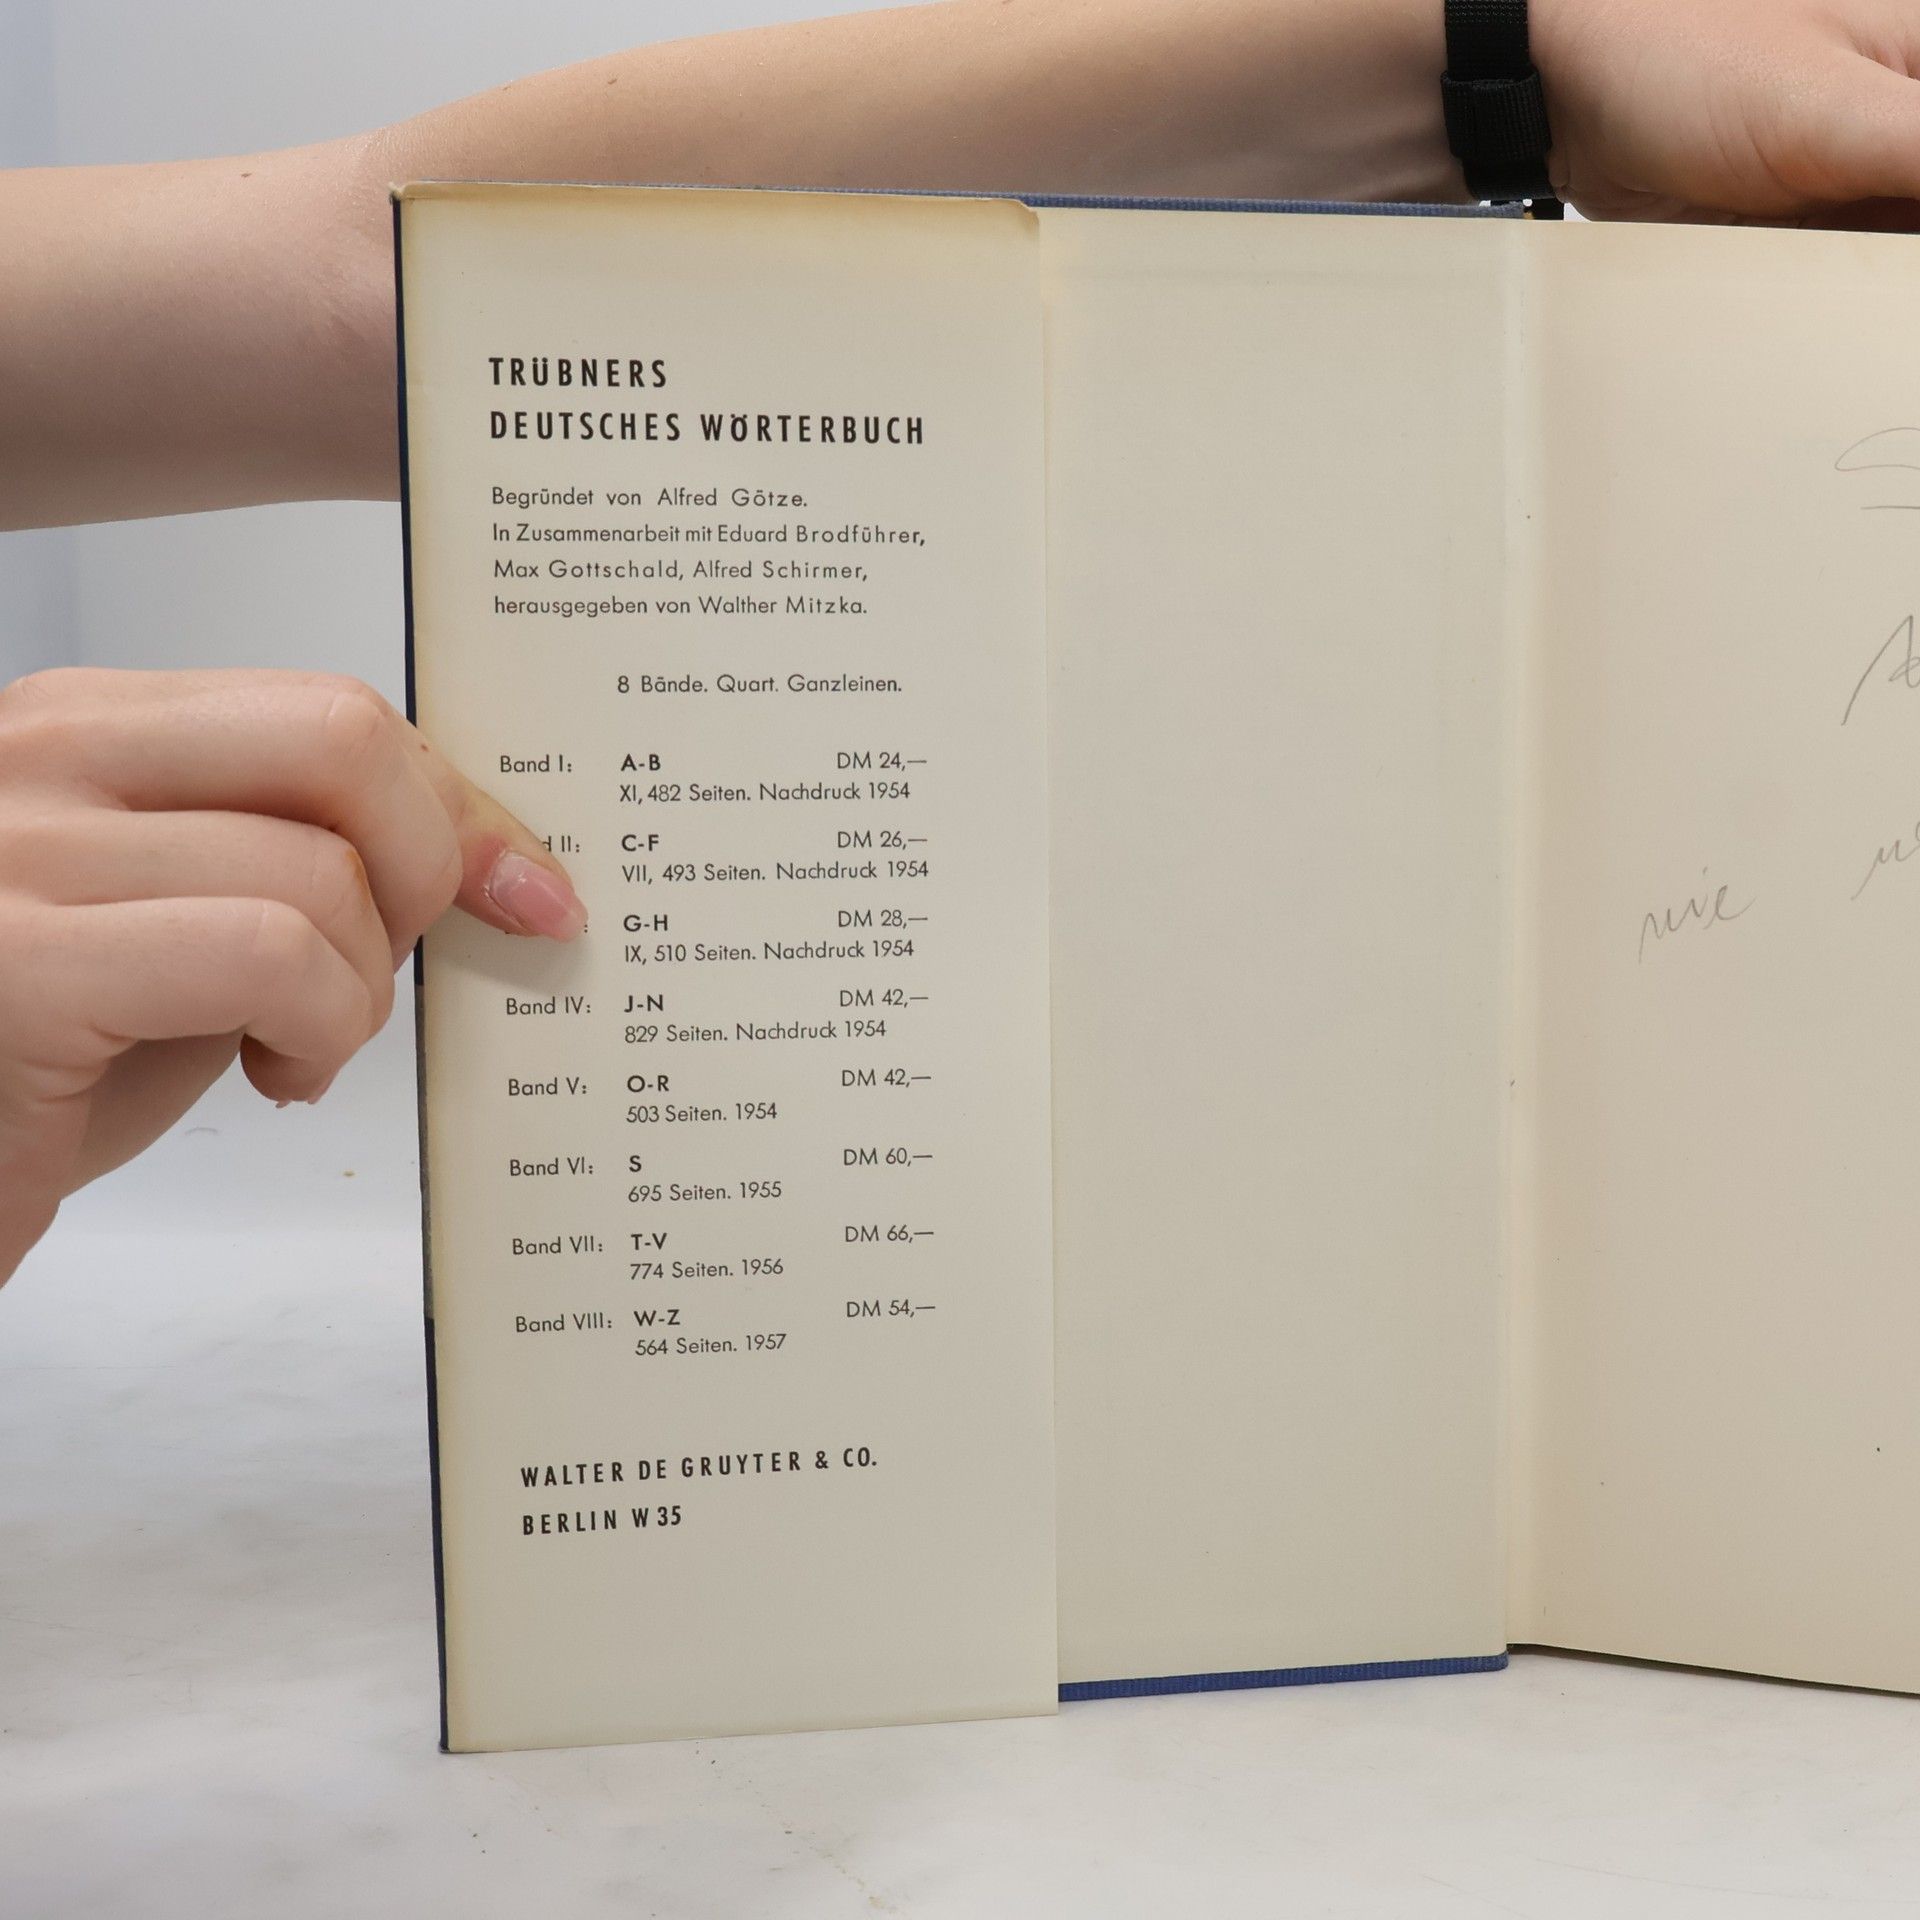 TRÜBNERS
DEUTSCHES WÖRTERBUCH
Begründet von Alfred Götze.
In Zusammenarbeit mit Eduard Brodführer,
Max Gottschald, Alfred Schirmer,
herausgegeben von Walther Mitzka.
8 Bände. Quart. Ganzleinen.
Band I: A-B DM 24,—
XI, 482 Seiten. Nachdruck 1954
II: C-F DM 26,—
VII, 493 Seiten. Nachdruck 1954
: G-H DM 28,—
IX, 510 Seiten. Nachdruck 1954
Band IV: J-N DM 42,—
829 Seiten. Nachdruck 1954
Band V: O-R DM 42,—
503 Seiten. 1954
Band VI: S DM 60,—
695 Seiten. 1955
Band VII: T-V DM 66,—
774 Seiten. 1956
Band VIII: W-Z DM 54,—
564 Seiten. 1957
WALTER DE GRUYTER & CO.
BERLIN W 35